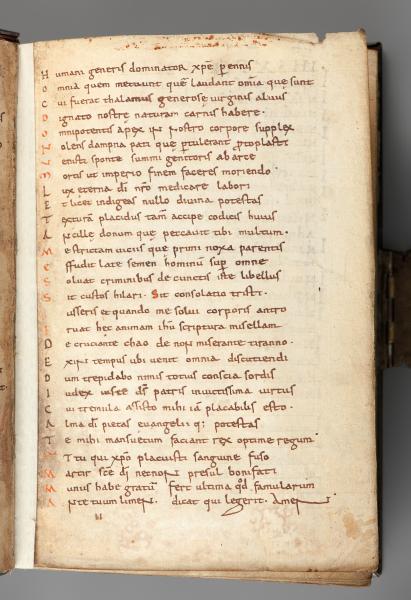 Humani generis dominator xp̄e p̱ennis
Omnia quem metuunt quē laudant om̄ia que sunt
Cui fuerat thalamus generose virginis aluus
Dignato nostre naturam carnis habere.
Omnipotentis apex in nostro corpore supplex
Nolens dampna pati que p̱tulerant p̱toplasti
Venisti sponte summi genitoris ab arce
Mortis ut imperio finem faceres moriendo.
Lux eterna dī nr̄o medicare labori
Et licet indigeas nullo diuina potestas
Textura placidus tam̄ accipe codicis huius
Ancille donum que peccauit tibi multum.
Me strictam uiciis que primi noxa parentis
Effudit late semen hominum sup̱ omne
Soluat criminibus de cunctis iste libellus
Sit custos hilari. Sit consolatio tristi.
Iusseris et quando me solui corporis antro
Eruat hec animam ih̄u scriptura misellam
De cruciante chao de non miserante tiranno.
Exin tempus ubi uenit omnia discutiendi
Dum trepidabo nimis totius conscia sordis
Iudex iuste ds̄ patris inuictissima uirtus
Cui tremula assisto mihi iā placabilis esto.
Alma dī pietas euangelii q; potestas
Te mihi mansuetum faciant rex optime regum.
Et tu qui xp̄o placuisti sanguine fuso
Martir sc̄e dī necnon presul bonifati
Munus habe gratū fert ultima qd̄ famularum
Ante tuum limen. dicat qui legerit. Amen